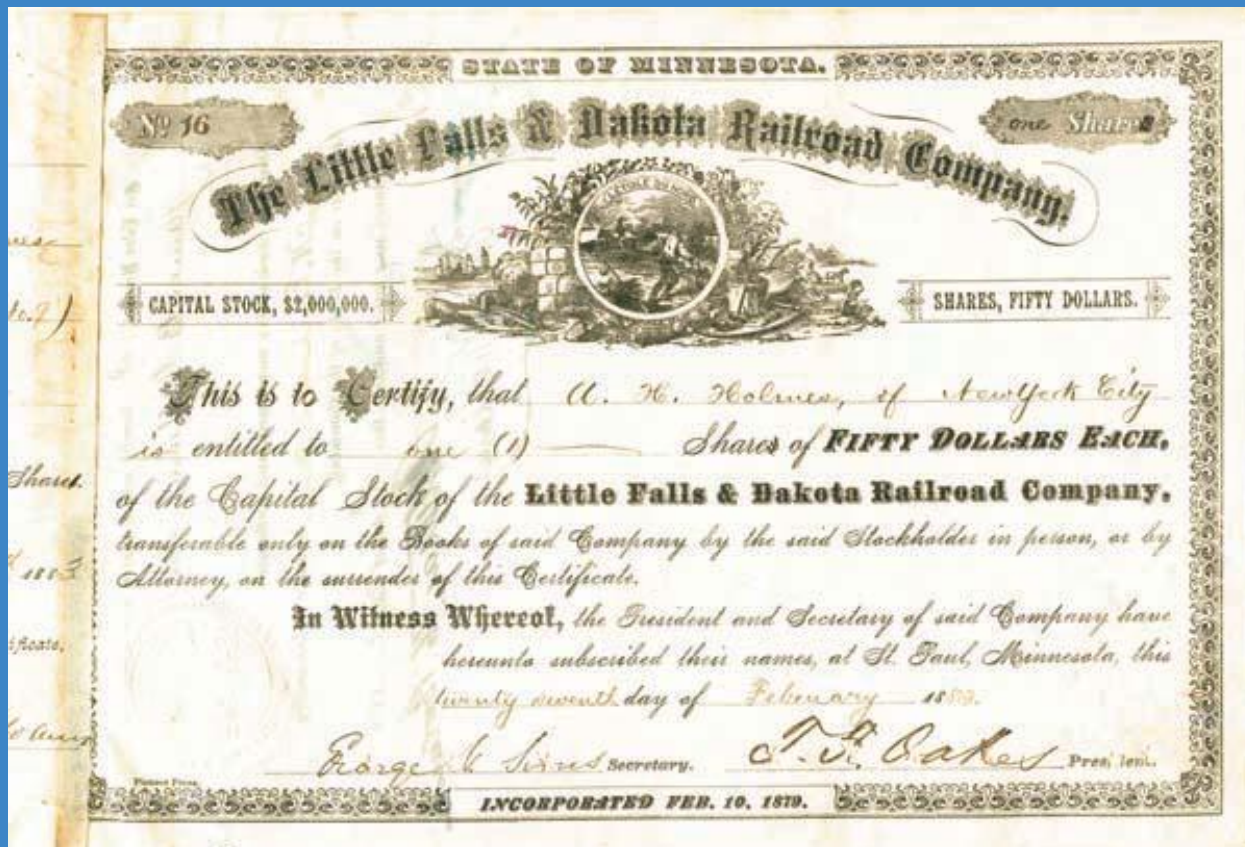 STATE OF MINNESOTA.
No 16
one Share
The Little Falls & Dakota Railroad Company.
CAPITAL STOCK, $2,000,000.
SHARES, FIFTY DOLLARS.
This is to Certify, that A. H. Holmes, of New York City
is entitled to one (1) Shares of FIFTY DOLLARS EACH,
of the Capital Stock of the Little Falls & Dakota Railroad Company,
transferable only on the Books of said Company by the said Stockholder in person, or by
Attorney, on the surrender of this Certificate.
In Witness Whereof, the President and Secretary of said Company have
hereunto subscribed their names, at St. Paul, Minnesota, this
twenty seventh day of February 1883.
George Secretary. T. F. Oakes President.
Pioneer Press.
INCORPORATED FEB. 10, 1879.
Shares.
1883